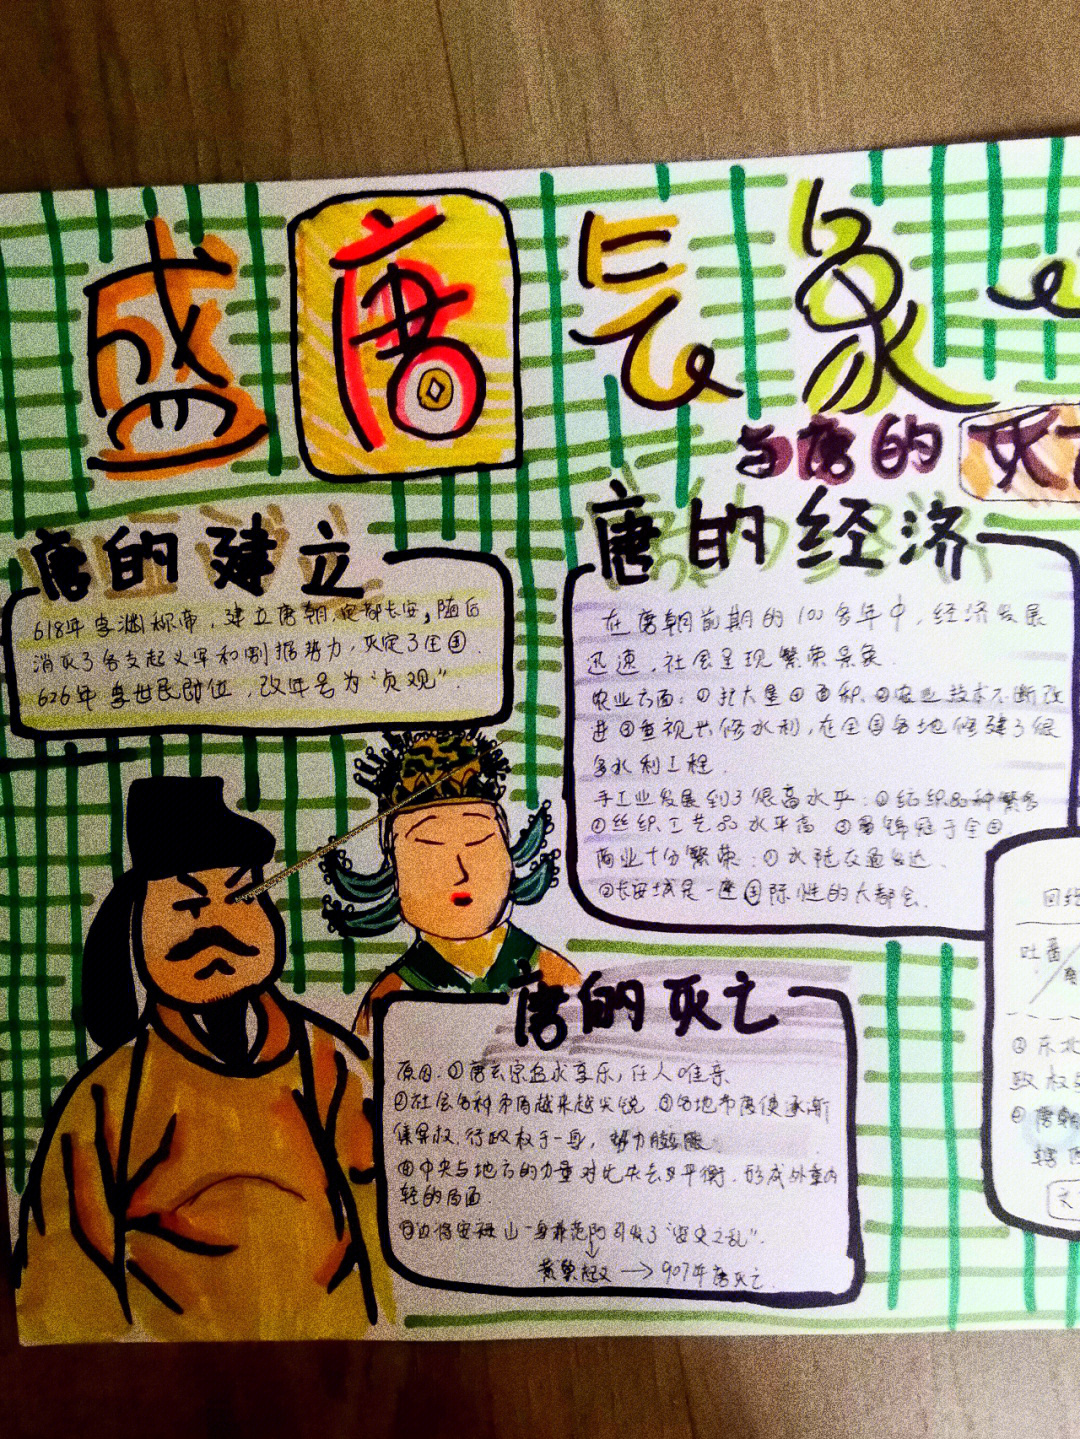 盛唐气象
与唐的灭亡
唐的建立
618年李渊称帝，建立唐朝，定都长安，随后
消灭了各支起义军和割据势力，灭定了全国.
626年李世民即位，改年号为“贞观”.
唐的经济
在唐朝前期的100多年中，经济发展
迅速，社会呈现繁荣景象.
农业方面：①扩大垦田面积.②农业技术不断改
进③重视兴修水利，在全国各地修建了很
多水利工程.
手工业发展到了很高水平：①纺织品种繁多
②丝织工艺品水平高 ③蜀锦冠于全国
商业十分繁荣：①水陆交通发达.
②长安城是一座国际性的大都会.
唐的灭亡
原因：①唐玄宗追求享乐，任人唯亲
②社会各种矛盾越来越尖锐.③各地节度使逐渐
集军权.行政权于一身，势力膨胀.
④中央与地方的力量对比失去平衡.形成外重内
轻的局面
⑤边将安禄山一身兼范阳 引发了“安史之乱”.
黄巢起义→907年唐灭亡.
回纥
吐蕃
②东北
政权
④唐朝
辖